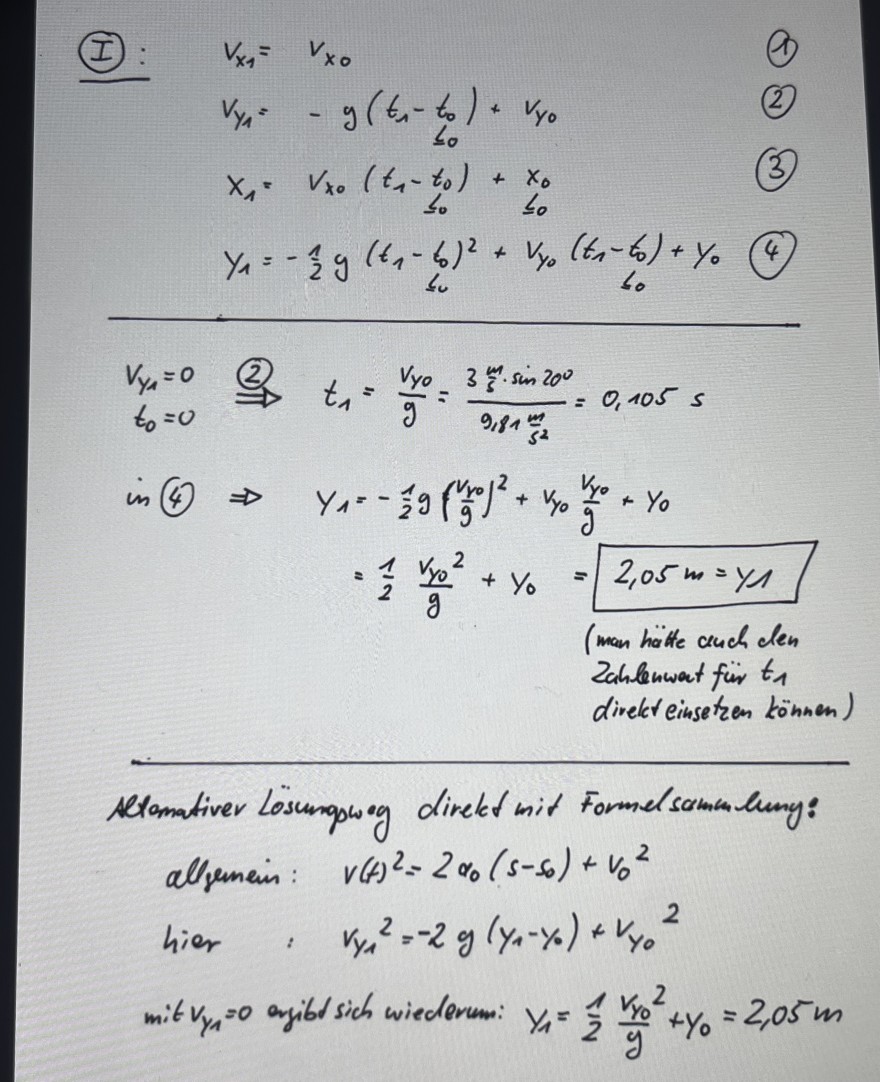 I : Vx1 = Vx0 ①
Vy1 = - g (t1 - t0) + Vy0 ②
=0
x1 = Vx0 (t1 - t0) + x0 ③
=0 =0
y1 = - 1/2 g (t1 - t0)² + Vy0 (t1 - t0) + y0 ④
=0 =0
Vy1 = 0 ② ⇒ t1 = Vy0/g = (3 m/s · sin 20°)/(9,81 m/s²) = 0,105 s
t0 = 0
in ④ ⇒ y1 = - 1/2 g (Vy0/g)² + Vy0 Vy0/g + y0
= 1/2 Vy0²/g + y0 = 2,05 m = y1
(man hätte auch den
Zahlenwert für t1
direkt einsetzen können)
Alternativer Lösungsweg direkt mit Formelsammlung:
allgemein: v(t)² = 2 a0 (s - s0) + v0²
hier : Vy1² = -2 g (y1 - y0) + Vy0²
mit Vy1 = 0 ergibt sich wiederum: y1 = 1/2 Vy0²/g + y0 = 2,05 m